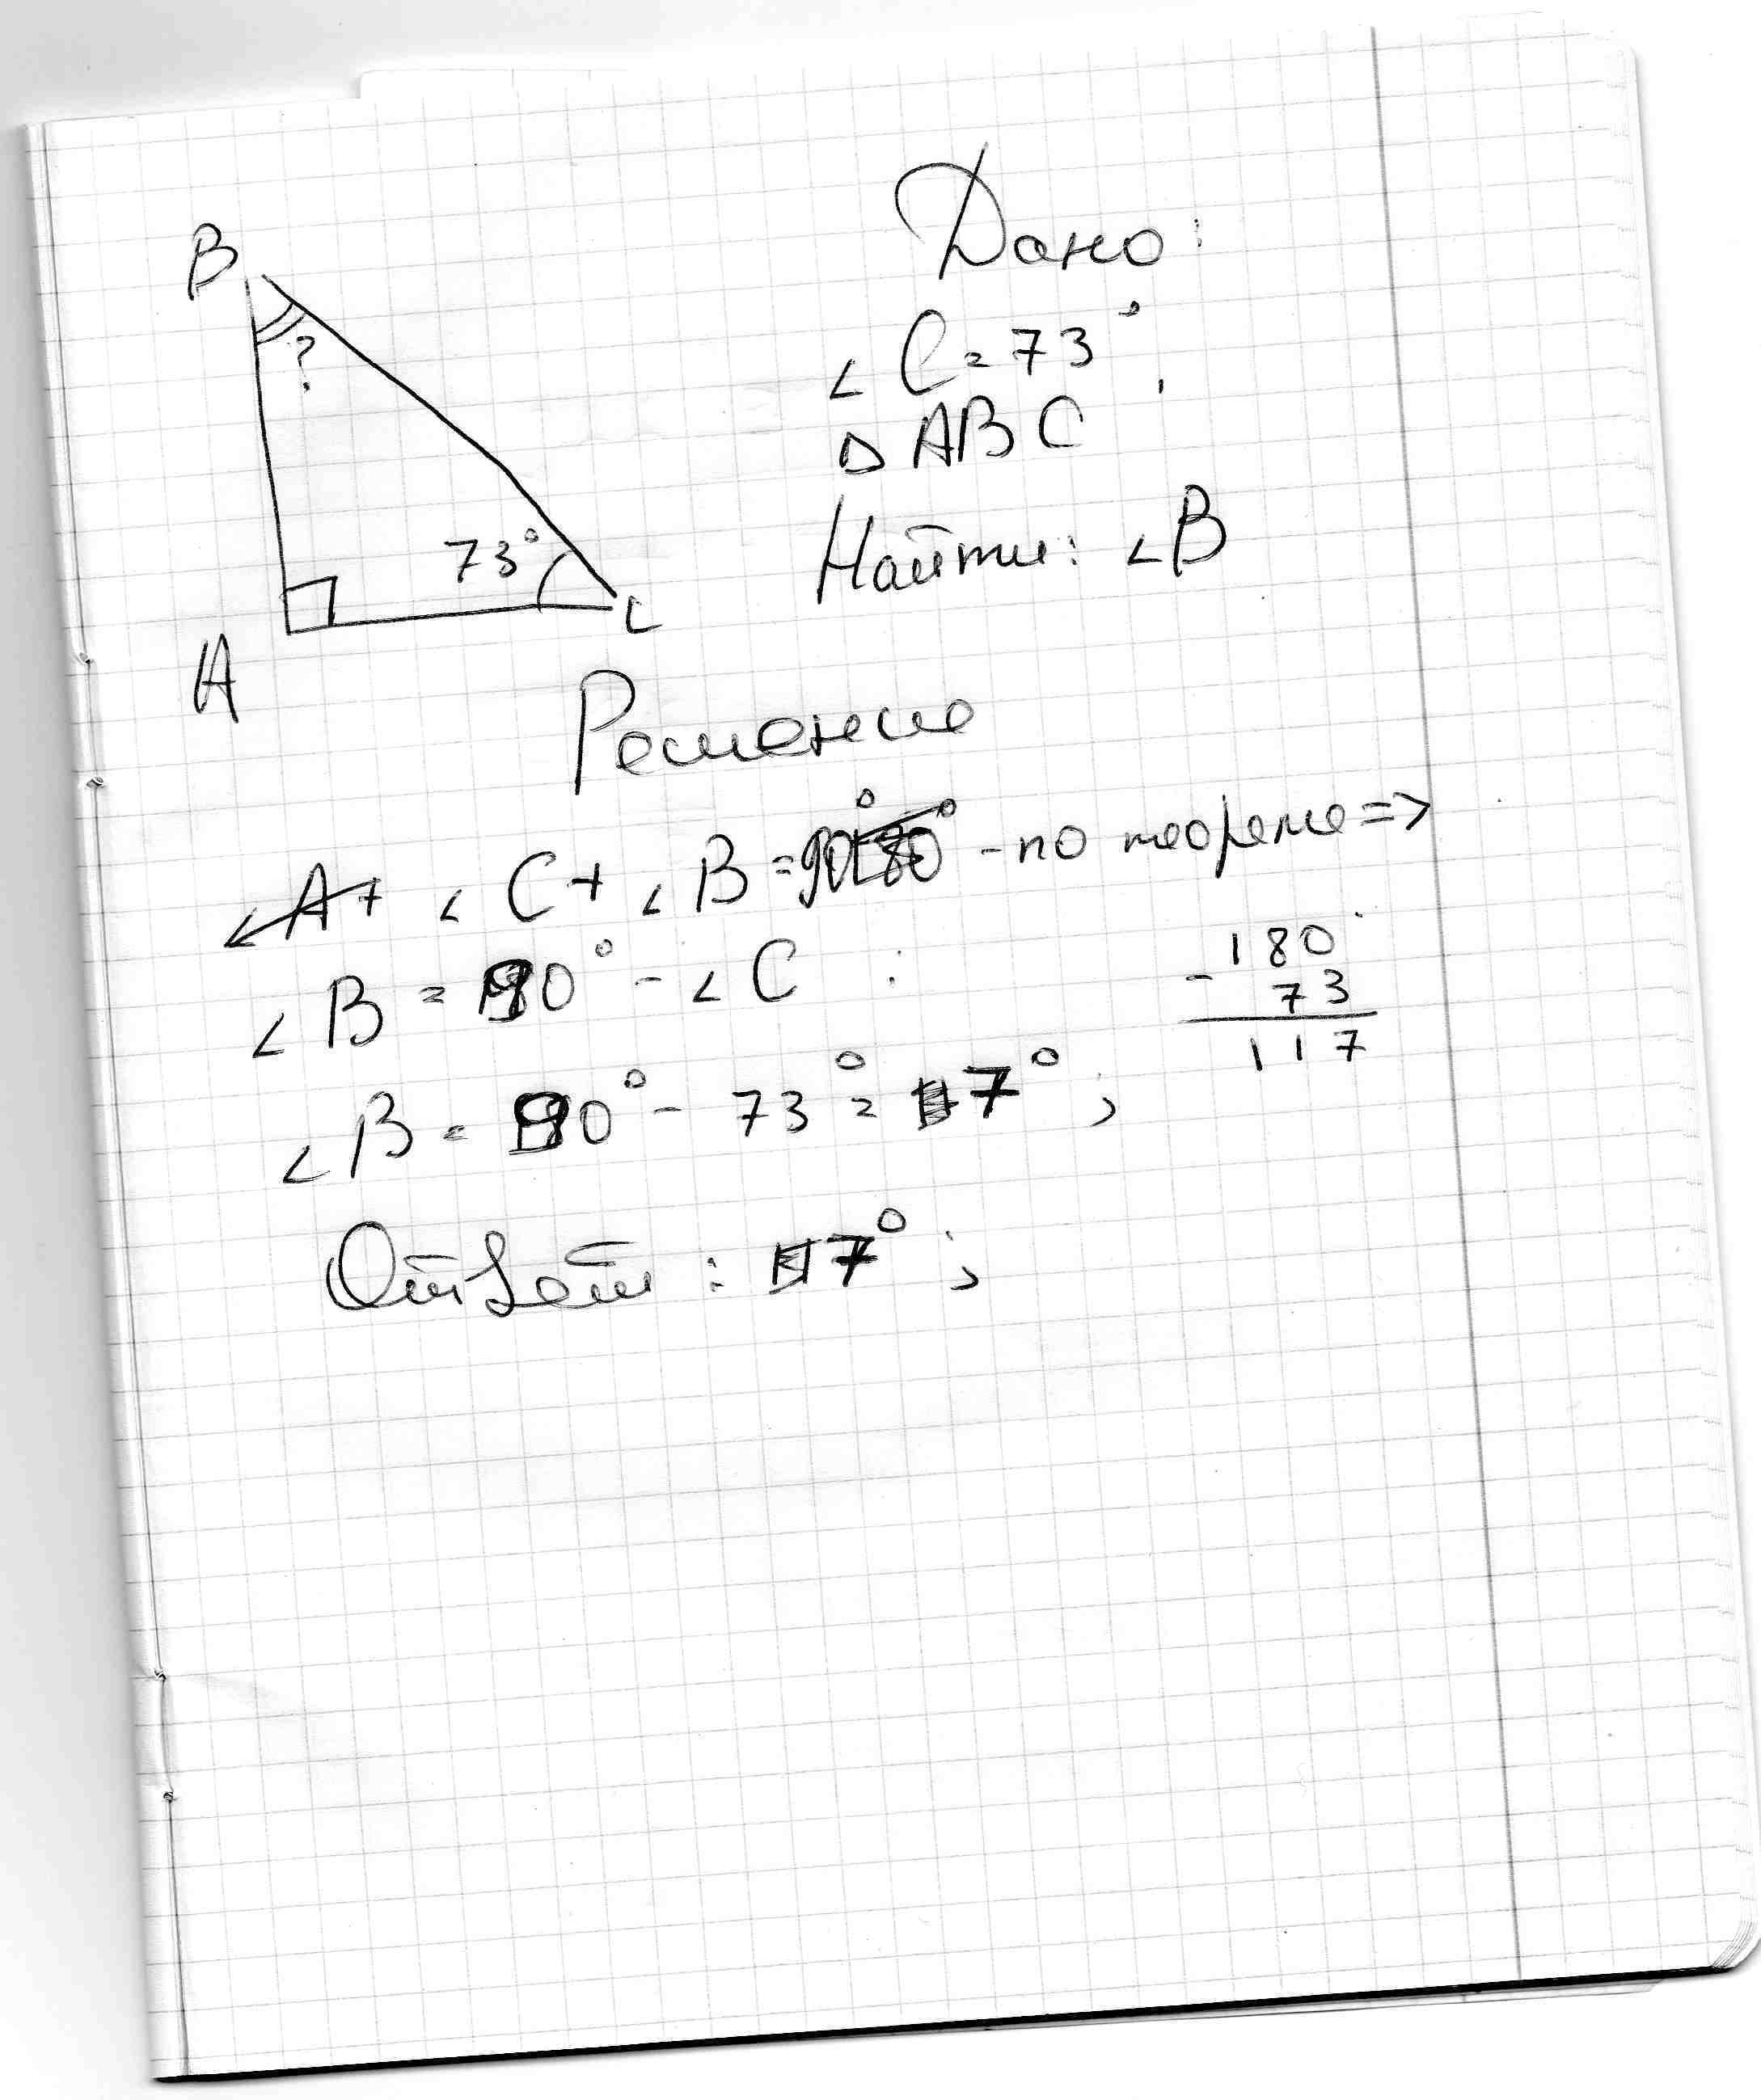 B
?
73°
A
C
Дано:
∠C=73°,
△ABC
Найти: ∠B
Решение
∠A+ ∠C+ ∠B=90° 180° -по теореме=>
∠B = 90° - ∠C
∠B = 90° - 73° = 17°;
-180
73
117
Ответ: 17°;